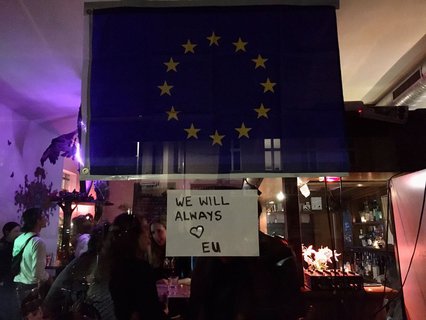 WE WILL
ALWAYS
♡ EU